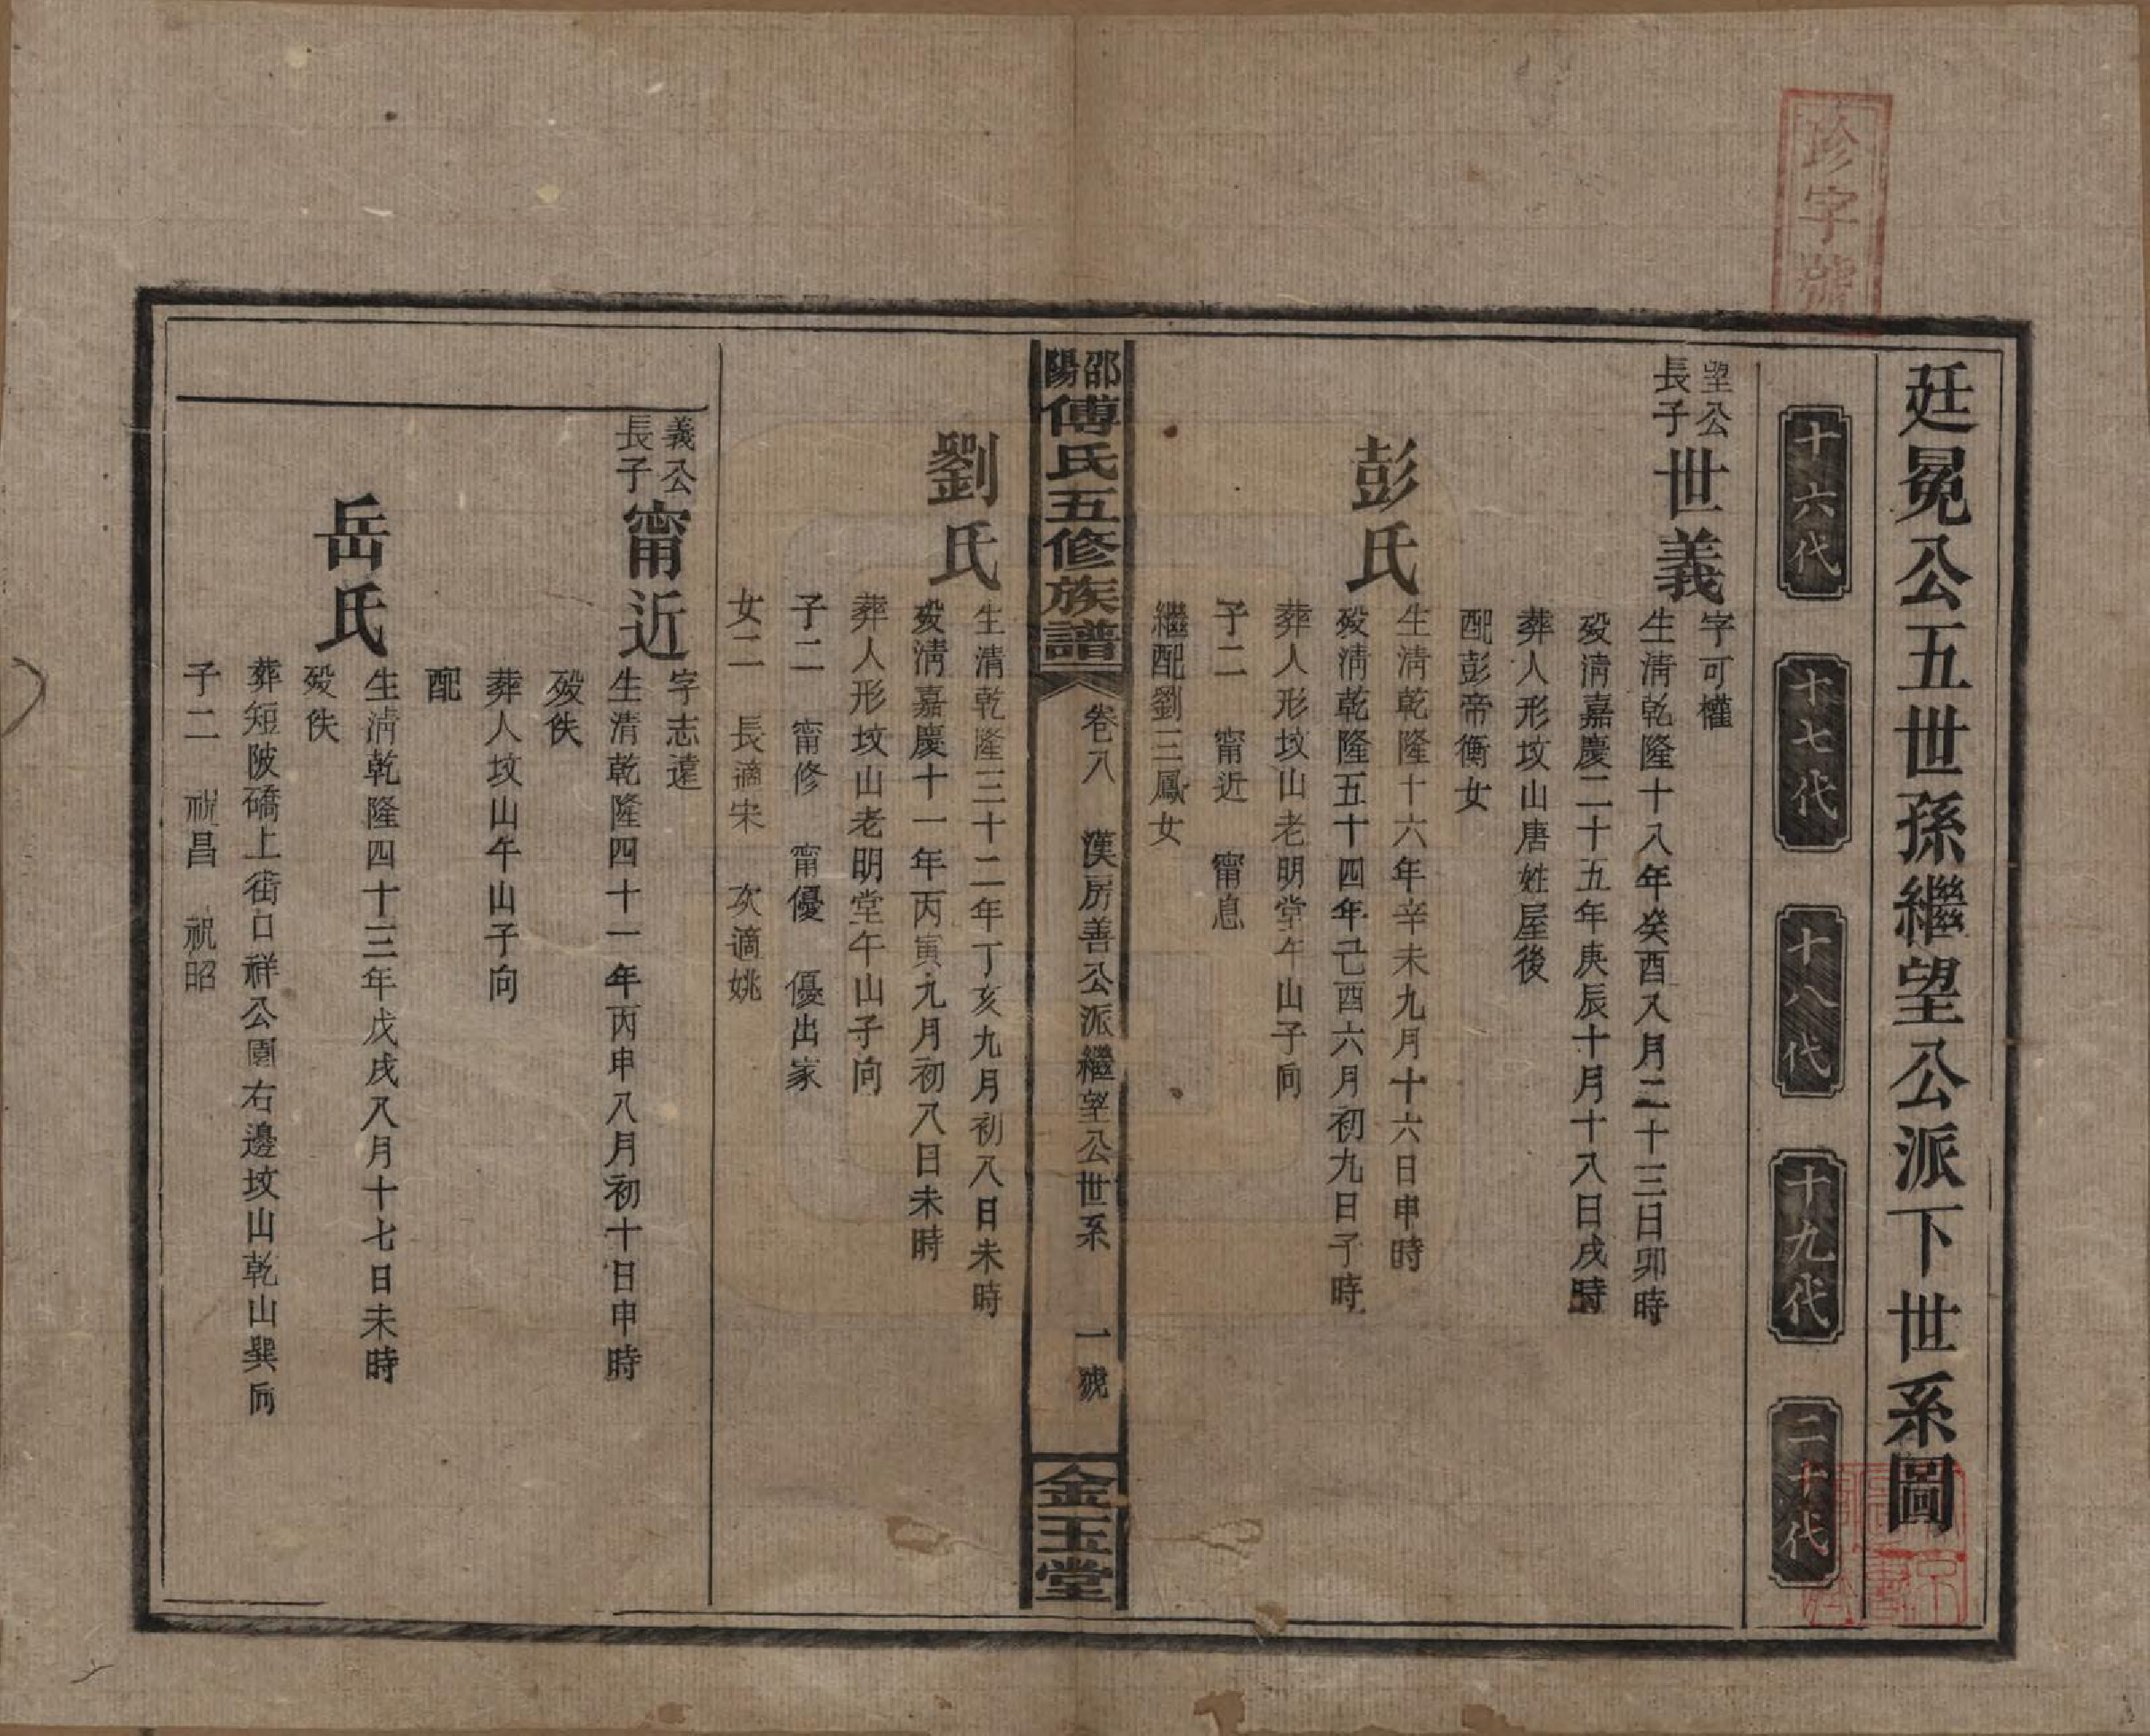 珍字號
廷冕公五世孫繼望公派下世系圖
十六代
十七代
十八代
十九代
二十代
望公
長子
世義
字可權
生清乾隆十八年癸酉八月二十三日卯時
歿清嘉慶二十五年庚辰十月十八日戌時
葬人形坟山唐姓屋後
配彭帝衡女
彭氏
生清乾隆十六年辛未九月十六日申時
歿清乾隆五十四年己酉六月初九日子時
葬人形坟山老明堂午山子向
子二 甯近 甯息
繼配劉三鳳女
邵陽傅氏五修族譜
卷八 漢房善公派繼望公世系 一號
金玉堂
劉氏
生清乾隆三十二年丁亥九月初八日未時
歿清嘉慶十一年丙寅九月初八日未時
葬人形坟山老明堂午山子向
子二 甯修 甯優 優出家
女二 長適宋 次適姚
義公
長子
甯近
字志遠
生清乾隆四十一年丙申八月初十日申時
歿佚
葬人坟山午山子向
配
岳氏
生清乾隆四十三年戊戌八月十七日未時
歿佚
葬短陂礄上街口祥公園右邊坟山乾山巽向
子二 祝昌 祝昭